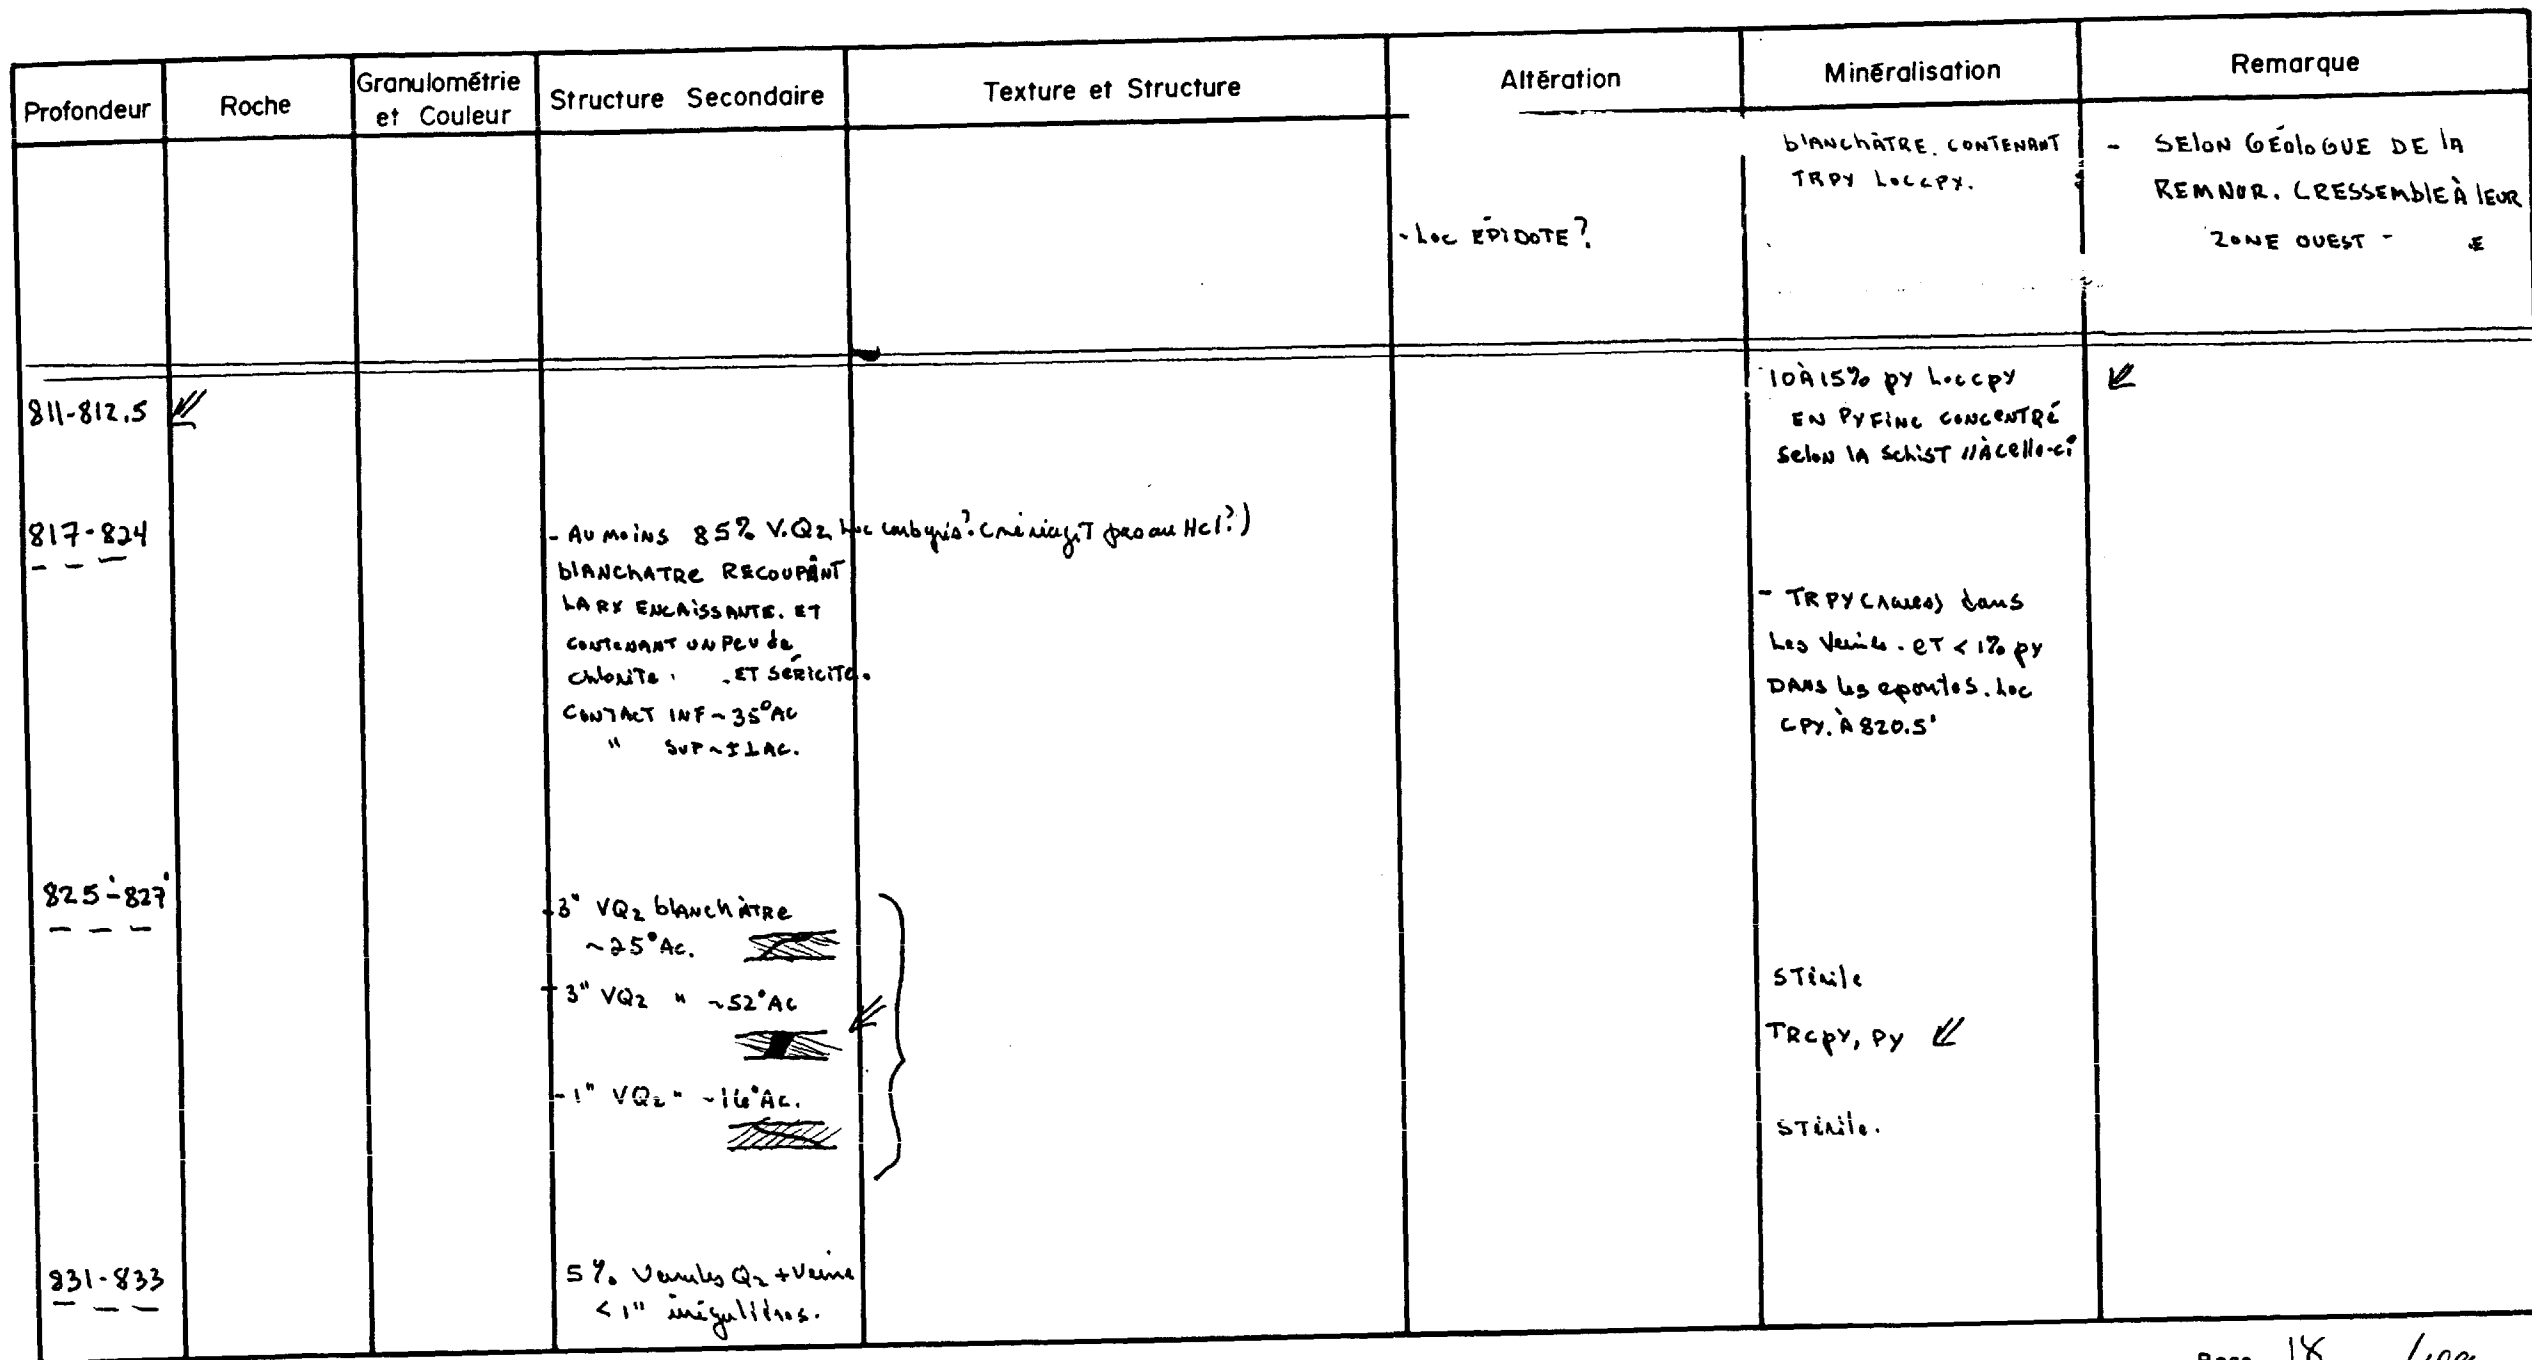 Profondeur
Roche
Granulométrie
et Couleur
Structure Secondaire
Texture et Structure
Altération
Minéralisation
Remarque
blANChâTRE. CONTENANT
TRPY Loc CPY.
- SElON GÉOlOGUE DE lA
REMNOR. CRESSEMblE À lEUR
ZONE OUEST -
- Loc ÉPIDOTE?
811-812.5
10 À 15% py Loc cpy
EN PY FINE CONCENTRÉ
Selon lA Schist // À celle-ci
817-824
- AU MOINS 85% V.Qz Loc carb gris? (ne réagit pas au Hcl?)
blANChATRE RECOUPANT
LA RX ENCAISSANTE. ET
CONTENANT UN PEU de
chlorite. ET SÉRICITE.
CONTACT INF ~ 35° AC
" SUP ~ ± ⊥ AC.
- TRPY dans
Les Veines. ET < 1% py
DANS les epontes. Loc
CPY. À 820.5'
825'-827'
- 3" VQz blANChÂTRE
~25° AC.
STérile
- 3" VQz " ~52° AC
TRcpY, PY
- 1" VQz " ~16° AC.
STérile.
831-833
5% Veinules Qz + Veine
< 1" irrégulières.
Page 18